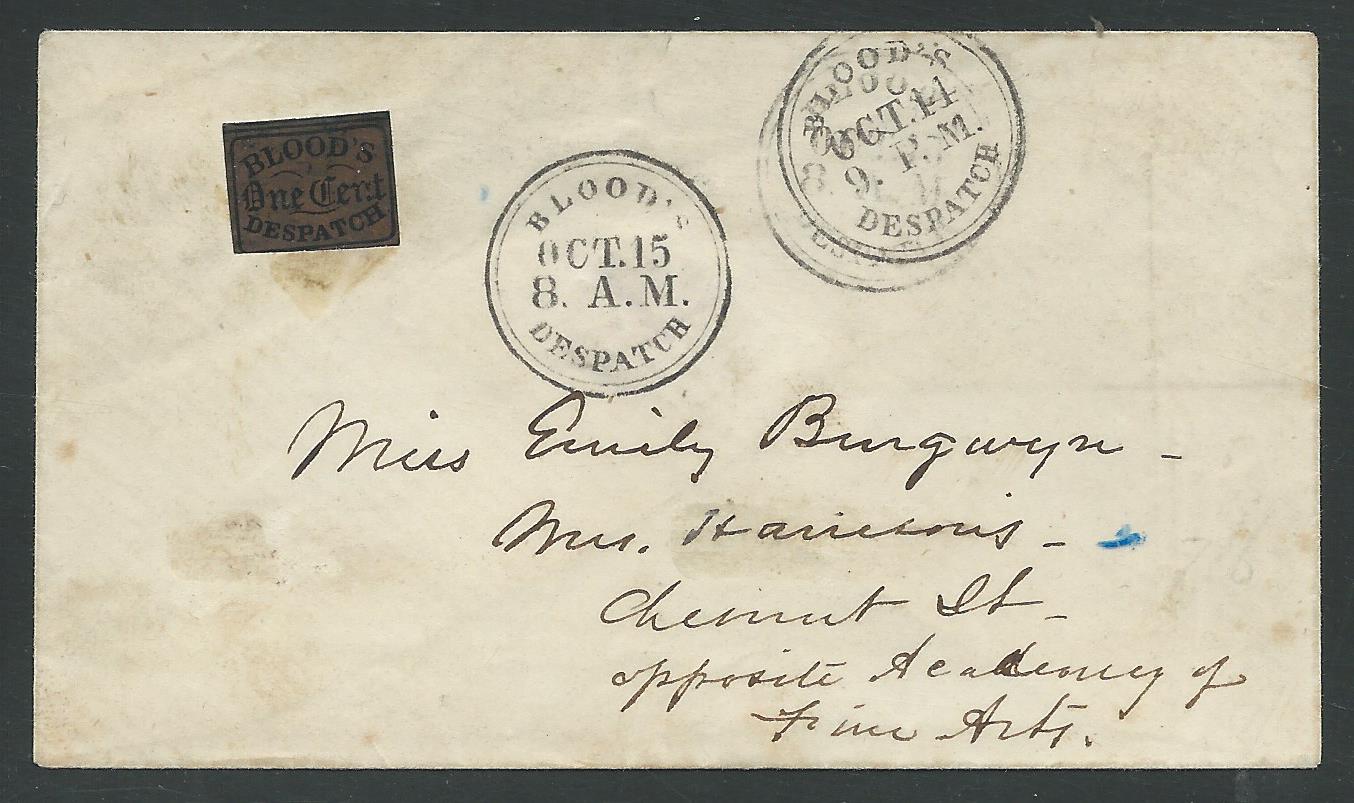 BLOOD'S
One Cent
DESPATCH
BLOOD'S
OCT.15
8. A.M.
DESPATCH
BLOOD'S
OCT.14
9. P.M.
DESPATCH
Miss Emily Burgwyn -
Mrs. Harrison's -
Chesnut St -
opposite Academy of
Fine Arts.